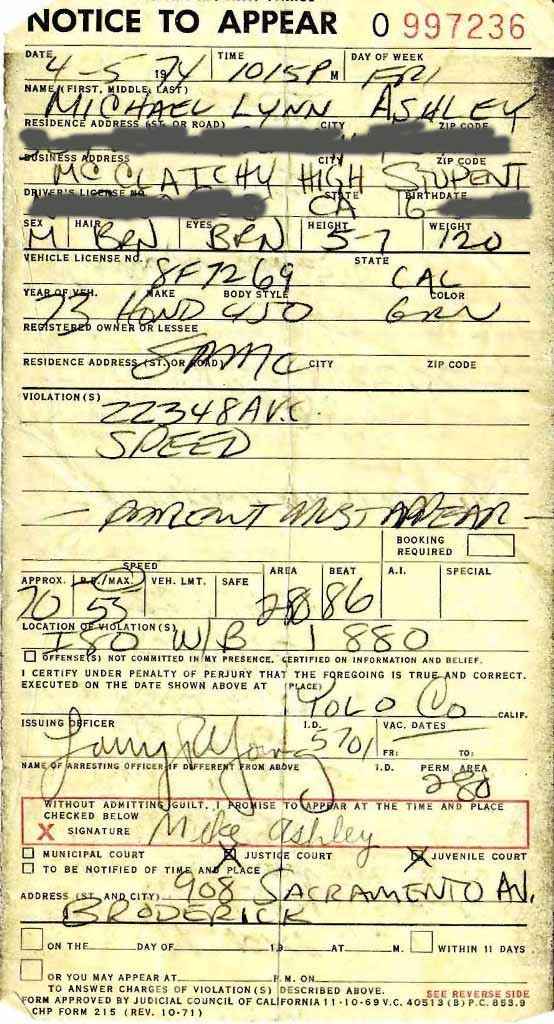 NOTICE TO APPEAR O 997236
DATE TIME DAY OF WEEK
4-5 1974 1015P M FRI
NAME (FIRST, MIDDLE, LAST)
MICHAEL LYNN ASHLEY
RESIDENCE ADDRESS (ST. OR ROAD) CITY ZIP CODE
BUSINESS ADDRESS CITY ZIP CODE
MC CLATCHY HIGH STUDENT
DRIVER'S LICENSE NO. STATE BIRTHDATE
CA 6
SEX HAIR EYES HEIGHT WEIGHT
M BRN BRN 5-7 120
VEHICLE LICENSE NO. STATE
8F7269 CAL
YEAR OF VEH. MAKE BODY STYLE COLOR
73 HOND 450 GRN
REGISTERED OWNER OR LESSEE
SAME
RESIDENCE ADDRESS (ST. OR ROAD) CITY ZIP CODE
VIOLATION(S)
22348A V.C.
SPEED
— PARENT MUST APPEAR —
BOOKING REQUIRED
SPEED
APPROX. P.F./MAX. VEH. LMT. SAFE AREA BEAT A.I. SPECIAL
70 55 280 86
LOCATION OF VIOLATION(S)
I80 W/B I 880
OFFENSE(S) NOT COMMITTED IN MY PRESENCE, CERTIFIED ON INFORMATION AND BELIEF.
I CERTIFY UNDER PENALTY OF PERJURY THAT THE FOREGOING IS TRUE AND CORRECT.
EXECUTED ON THE DATE SHOWN ABOVE AT (PLACE)
YOLO CO CALIF.
ISSUING OFFICER I.D. VAC. DATES
Larry R Young 5701 FR: TO:
NAME OF ARRESTING OFFICER IF DIFFERENT FROM ABOVE I.D. PERM. AREA
280
WITHOUT ADMITTING GUILT, I PROMISE TO APPEAR AT THE TIME AND PLACE
CHECKED BELOW
X SIGNATURE Mike Ashley
MUNICIPAL COURT X JUSTICE COURT X JUVENILE COURT
TO BE NOTIFIED OF TIME AND PLACE
ADDRESS (ST. AND CITY) 908 SACRAMENTO AV.
BRODERICK
ON THE DAY OF 19 AT M. WITHIN 11 DAYS
OR YOU MAY APPEAR AT P.M. ON
TO ANSWER CHARGES OF VIOLATION(S) DESCRIBED ABOVE. SEE REVERSE SIDE
FORM APPROVED BY JUDICIAL COUNCIL OF CALIFORNIA 11-10-69 V.C. 40513 (B) P.C. 853.9
CHP FORM 215 (REV. 10-71)